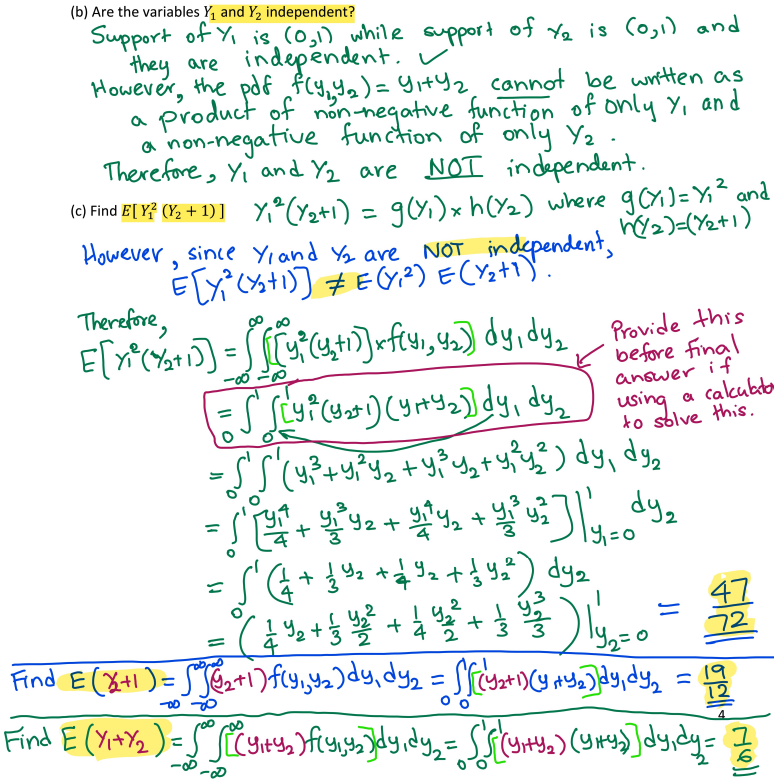 (b) Are the variables Y₁ and Y₂ independent?
Support of Y₁ is (0,1) while support of Y₂ is (0,1) and
they are independent. ✓
However, the pdf f(y₁,y₂) = y₁+y₂ cannot be written as
a product of non-negative function of only Y₁ and
a non-negative function of only Y₂.
Therefore, Y₁ and Y₂ are NOT independent.
(c) Find E[Y₁² (Y₂ + 1)] Y₁²(Y₂+1) = g(Y₁) × h(Y₂) where g(Y₁)=Y₁² and
h(Y₂)=(Y₂+1)
However, since Y₁ and Y₂ are NOT independent,
E[Y₁²(Y₂+1)] ≠ E(Y₁²) E(Y₂+1).
Therefore,
E[Y₁²(Y₂+1)] = ∫_{-∞}^{∞} ∫_{-∞}^{∞} [[y₁²(y₂+1)] × f(y₁,y₂)] dy₁ dy₂
= ∫₀¹ ∫₀¹ [y₁²(y₂+1)(y₁+y₂)] dy₁ dy₂
Provide this
before final
answer if
using a calculator
to solve this.
= ∫₀¹ ∫₀¹ (y₁³ + y₁²y₂ + y₁³y₂ + y₁²y₂²) dy₁ dy₂
= ∫₀¹ [y₁⁴/4 + y₁³/3 y₂ + y₁⁴/4 y₂ + y₁³/3 y₂²]|¹_{y₁=0} dy₂
= ∫₀¹ (1/4 + 1/3 y₂ + 1/4 y₂ + 1/3 y₂²) dy₂
= (1/4 y₂ + 1/3 y₂²/2 + 1/4 y₂²/2 + 1/3 y₂³/3)|¹_{y₂=0} = 47/72
Find E(Y₂+1) = ∫_{-∞}^{∞} ∫_{-∞}^{∞} (y₂+1) f(y₁,y₂) dy₁ dy₂ = ∫₀¹ ∫₀¹ [(y₂+1)(y₁+y₂)] dy₁ dy₂ = 19/12
4
Find E(Y₁+Y₂) = ∫_{-∞}^{∞} ∫_{-∞}^{∞} [(y₁+y₂) f(y₁,y₂)] dy₁ dy₂ = ∫₀¹ ∫₀¹ [(y₁+y₂)(y₁+y₂)] dy₁ dy₂ = 7/6